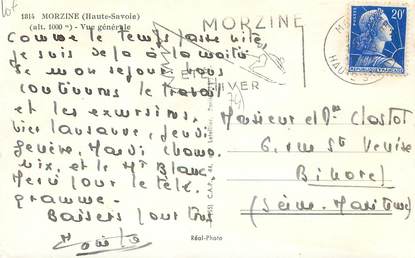 1814 MORZINE (Haute-Savoie)
(alt. 1000 m) - Vue générale
Comme le temps passe vite
Je suis déjà à la moitié
de mon séjour nous
continuons le travail
et les excursions,
hier Lausanne, jeudi
Genève, Mardi Chamo
nix, et le Mt Blanc
Merci pour le télé
gramme.
Baisers pour tous
MORZINE
ÉTÉ
HIVER
20F
Monsieur et Me Clastot
6, rue St Venise
Bihorel
(Seine-Maritime)
Réal-Photo